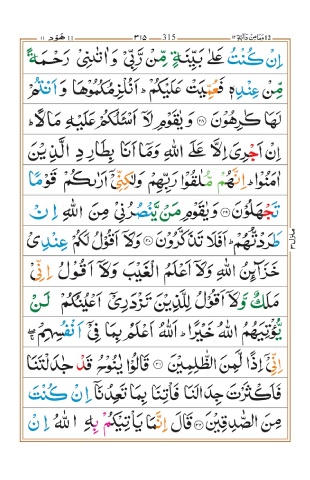 هود ١١ ٣١٥ 315 وما من دآبة ١٢
اِنْ كُنْتُ عَلٰى بَيِّنَةٍ مِّنْ رَّبِّيْ وَاٰتٰىنِيْ رَحْمَةً
مِّنْ عِنْدِهٖ فَعُمِّيَتْ عَلَيْكُمْ ؕ اَنُلْزِمُكُمُوْهَا وَاَنْتُمْ
لَهَا كٰرِهُوْنَ ﴿۲۸﴾ وَيٰقَوْمِ لَاۤ اَسْئَلُكُمْ عَلَيْهِ مَالًا ؕ
اِنْ اَجْرِيَ اِلَّا عَلَى اللّٰهِ وَمَاۤ اَنَا بِطَارِدِ الَّذِيْنَ
اٰمَنُوْا ؕ اِنَّهُمْ مُّلٰقُوْا رَبِّهِمْ وَلٰكِنِّيْۤ اَرٰىكُمْ قَوْمًا
تَجْهَلُوْنَ ﴿۲۹﴾ وَيٰقَوْمِ مَنْ يَّنْصُرُنِيْ مِنَ اللّٰهِ اِنْ
طَرَدْتُّهُمْ ؕ اَفَلَا تَذَكَّرُوْنَ ﴿۳۰﴾ وَلَاۤ اَقُوْلُ لَكُمْ عِنْدِيْ
خَزَآئِنُ اللّٰهِ وَلَاۤ اَعْلَمُ الْغَيْبَ وَلَاۤ اَقُوْلُ اِنِّيْ
مَلَكٌ وَّلَاۤ اَقُوْلُ لِلَّذِيْنَ تَزْدَرِيْۤ اَعْيُنُكُمْ لَنْ
يُّؤْتِيَهُمُ اللّٰهُ خَيْرًا ؕ اَللّٰهُ اَعْلَمُ بِمَا فِيْۤ اَنْفُسِهِمْ ۚۖ
اِنِّيْۤ اِذًا لَّمِنَ الظّٰلِمِيْنَ ﴿۳۱﴾ قَالُوْا يٰنُوْحُ قَدْ جٰدَلْتَنَا
فَاَكْثَرْتَ جِدَالَنَا فَاْتِنَا بِمَا تَعِدُنَاۤ اِنْ كُنْتَ
مِنَ الصّٰدِقِيْنَ ﴿۳۲﴾ قَالَ اِنَّمَا يَاْتِيْكُمْ بِهِ اللّٰهُ اِنْ